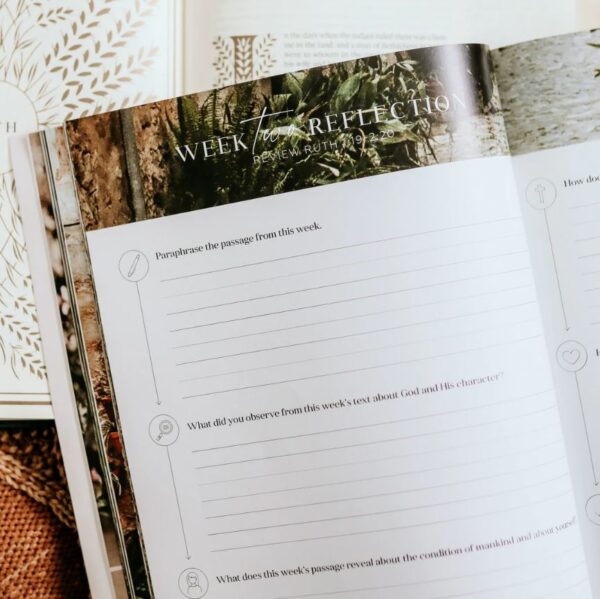 in the days when the judges ruled there was a
in the land, and a man of Bethlehem
WEEK two REFLECTION
REVIEW RUTH 1:19-2:20
TH
Paraphrase the passage from this week.
What did you observe from this week's text about God and His character?
What does this week's passage reveal about the condition of mankind and about yourself?
How doe